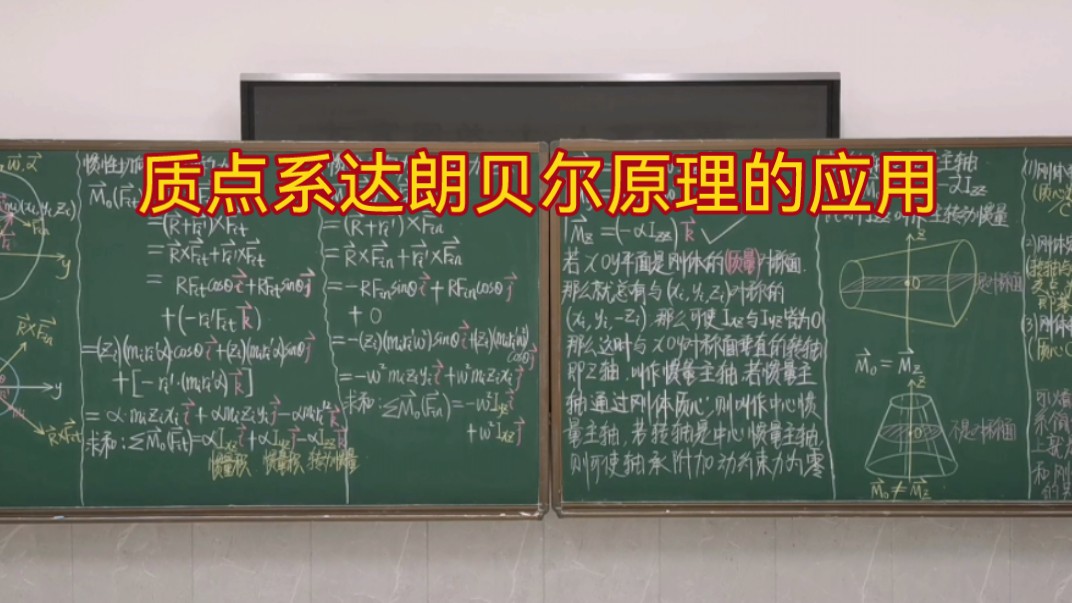 质点系达朗贝尔原理的应用
w⃗,α⃗
y
R⃗×F⃗in
y
R⃗×F⃗it
M⃗o(F⃗it
=(R⃗+r⃗i')×F⃗it
=R⃗×F⃗it+r⃗i'×F⃗it
= RFitcosθi⃗+RFitsinθj⃗
+(-ri'Fitk⃗)
=(zi)(miri'α)cosθi⃗+(zi)(miri'α)sinθj⃗
+[-ri'·(miri'α)k⃗]
=α·mizixii⃗+αmiziyij⃗-αmiri'²k⃗
求和:ΣM⃗o(F⃗it)=αIxzi⃗+αIyzj⃗-αIzzk⃗
惯量积 惯量积 转动惯量
=(R⃗+r⃗i')×F⃗in
=R⃗×F⃗in+r⃗i'×F⃗in
=-RFinsinθi⃗+RFincosθj⃗
+0
=-(zi)(miri'w²)sinθi⃗+(zi)(miri'w²)cosθj⃗
=-w²miziyii⃗+w²mizixij⃗
求和:ΣM⃗o(F⃗in)=-w²Iyzi⃗
+w²Ixzj⃗
M⃗z=(-αIzz)k⃗
若xoy平面是刚体的(质量)对称面.
那么就总有与(xi,yi,zi)对称的
(xi,yi,-zi),那么可使Ixz与Iyz皆为0
那么这时与xoy对称面垂直的转轴
即z轴,叫作惯量主轴,若惯量主
轴通过刚体质心,则叫作中心惯
量主轴,若转轴是中心惯量主轴,
则可使轴承附加动约束力为零
主轴
-αIzz
主转动惯量
z
o
是对称面
M⃗o=M⃗z
z
o
不是对称面
M⃗o≠M⃗z
(1)刚体
(质心
2)刚体
(3)刚体
(质心